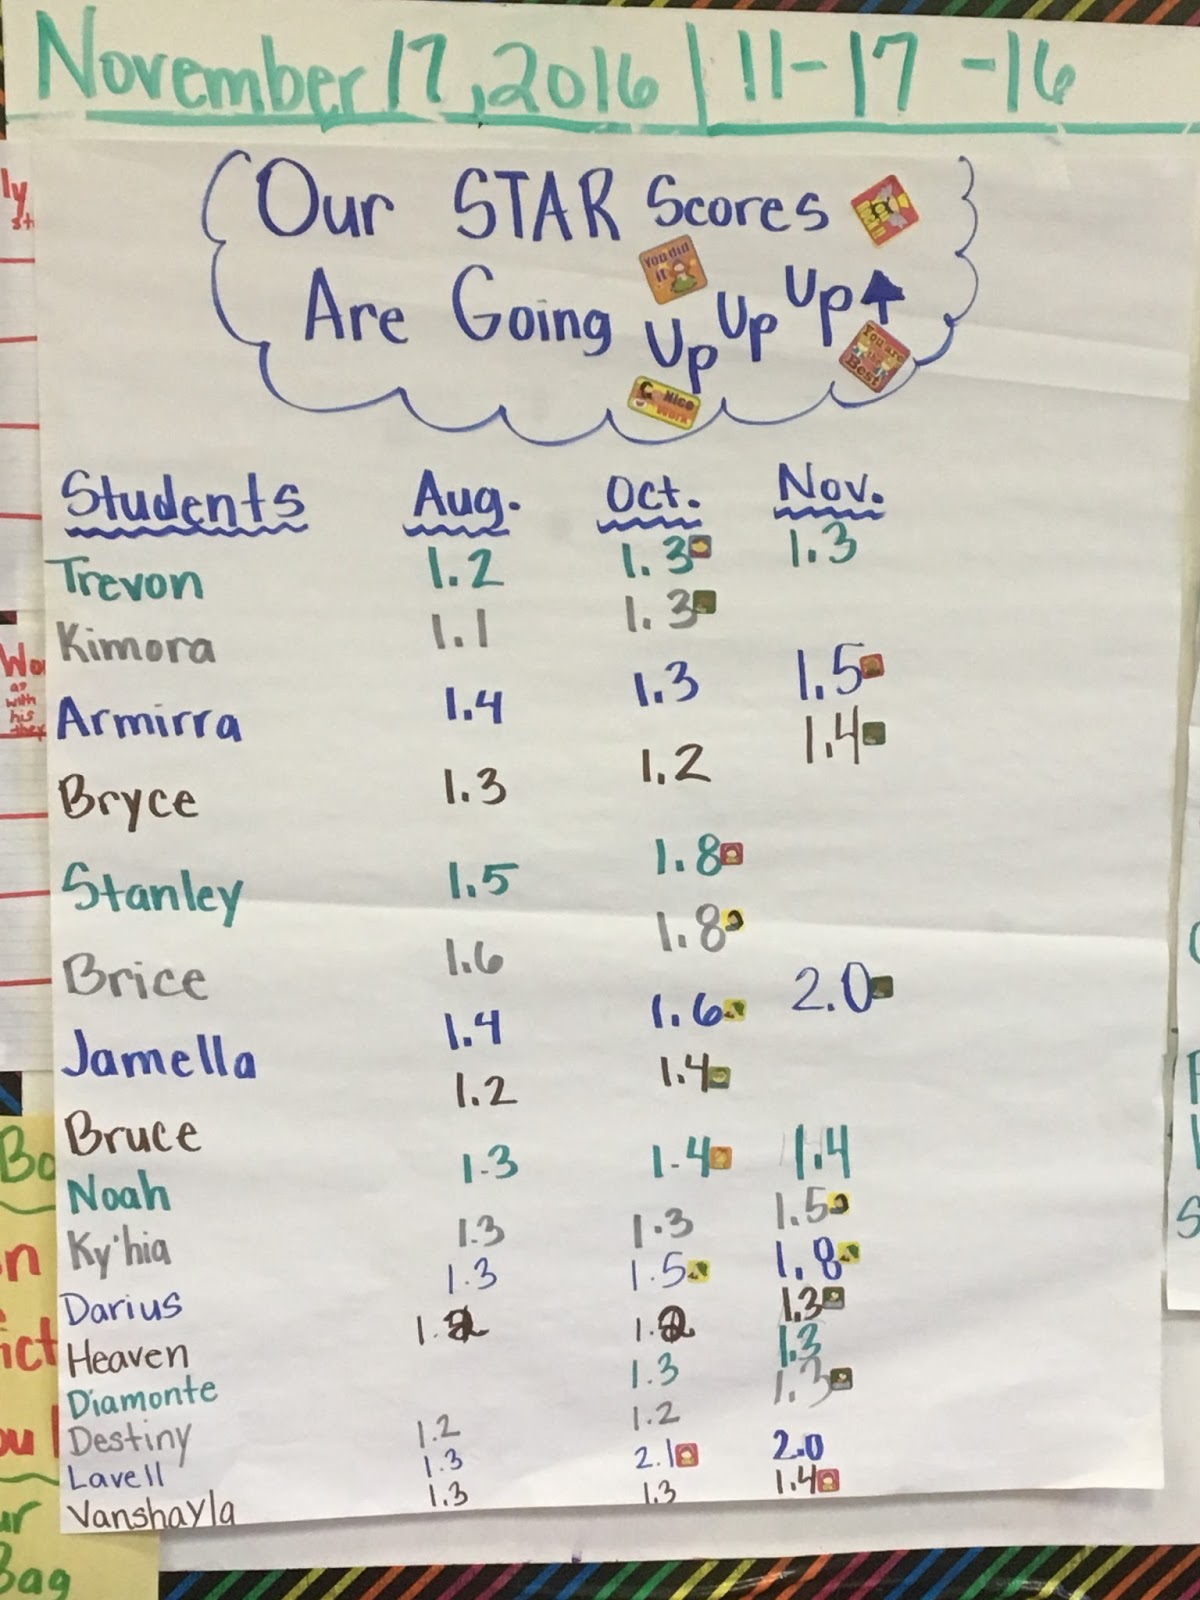 November 17, 2016 | 11-17-16
Our STAR Scores
Are Going Up Up Up
You did it
You are the Best
Nice Work
Students Aug. Oct. Nov.
Trevon 1.2 1.3 1.3
Kimora 1.1 1.3
Armirra 1.4 1.3 1.5
Bryce 1.3 1.2 1.4
Stanley 1.5 1.8
Brice 1.6 1.8
Jamella 1.4 1.6 2.0
Bruce 1.2 1.4
Noah 1.3 1.4 1.4
Ky'hia 1.3 1.3 1.5
Darius 1.3 1.5 1.8
Heaven 1.2 1.2 1.3
Diamonte 1.3 1.3
Destiny 1.2 1.2 1.3
Lavell 1.3 2.1 2.0
Vanshayla 1.3 1.3 1.4
ly
Wo
as
with
his
Bo
n
ict
ou
ur
Bag